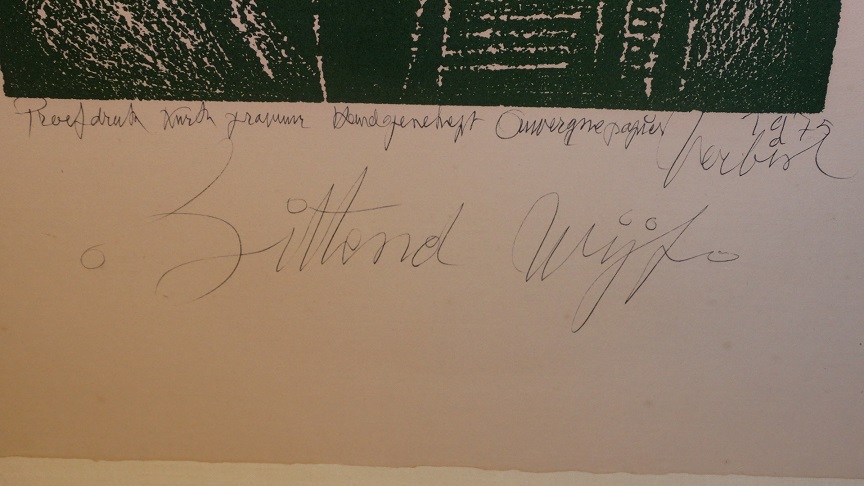 Proefdruk gravure Handgeschept Auvergnepapier 1975
Verbist
Zittend Wijf